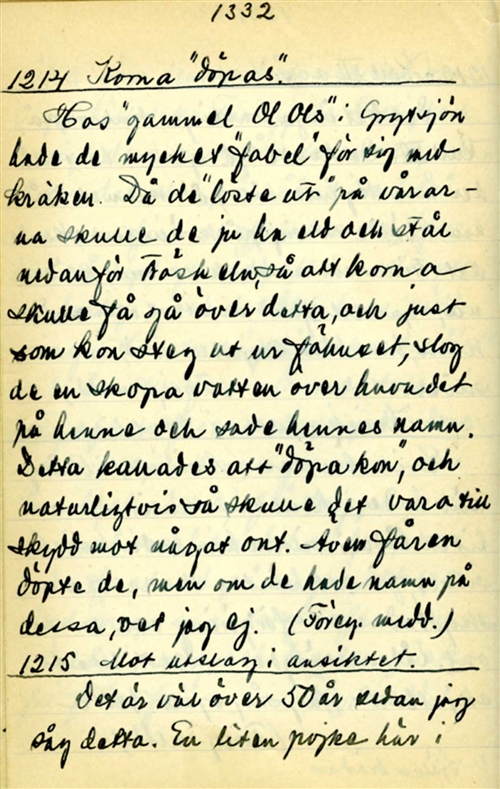 1332
1214 Korna "döpas".
Hos "gammel Ol Ols" i Grytsjön
hade de mycket "fabel" för sig med
kräken. Då de "löste ut" på vårar-
na skulle de ju ha eld och stål
nedanför tröskeln, så att korna
skulle få gå över detta, och just
som kon steg ut ur fähuset, slog
de en skopa vatten över huvudet
på henne och sade hennes namn.
Detta kallades att "döpa kon", och
naturligtvis så skulle det vara till
skydd mot något ont. Även fåren
döpte de, men om de hade namn på
dessa, vet jag ej. (Föreg. medd.)
1215 Mot utslag i ansiktet.
Det är väl över 50 år sedan jag
såg detta. En liten pojke här i